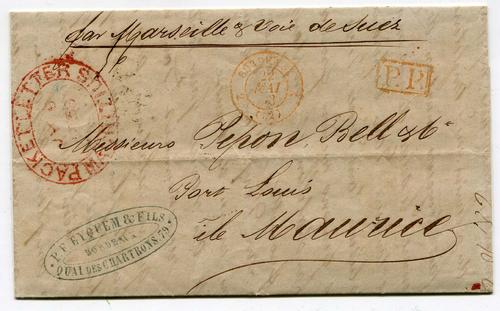 par Marseille & Voie de Suez
BORDEAUX
MAI
P.P.
PACKET LETTER
Messieurs Pepon, Bell & Cie
Port Louis
île Maurice
P. F. EYQUEM & FILS
BORDEAUX
QUAI DES CHARTRONS, 79